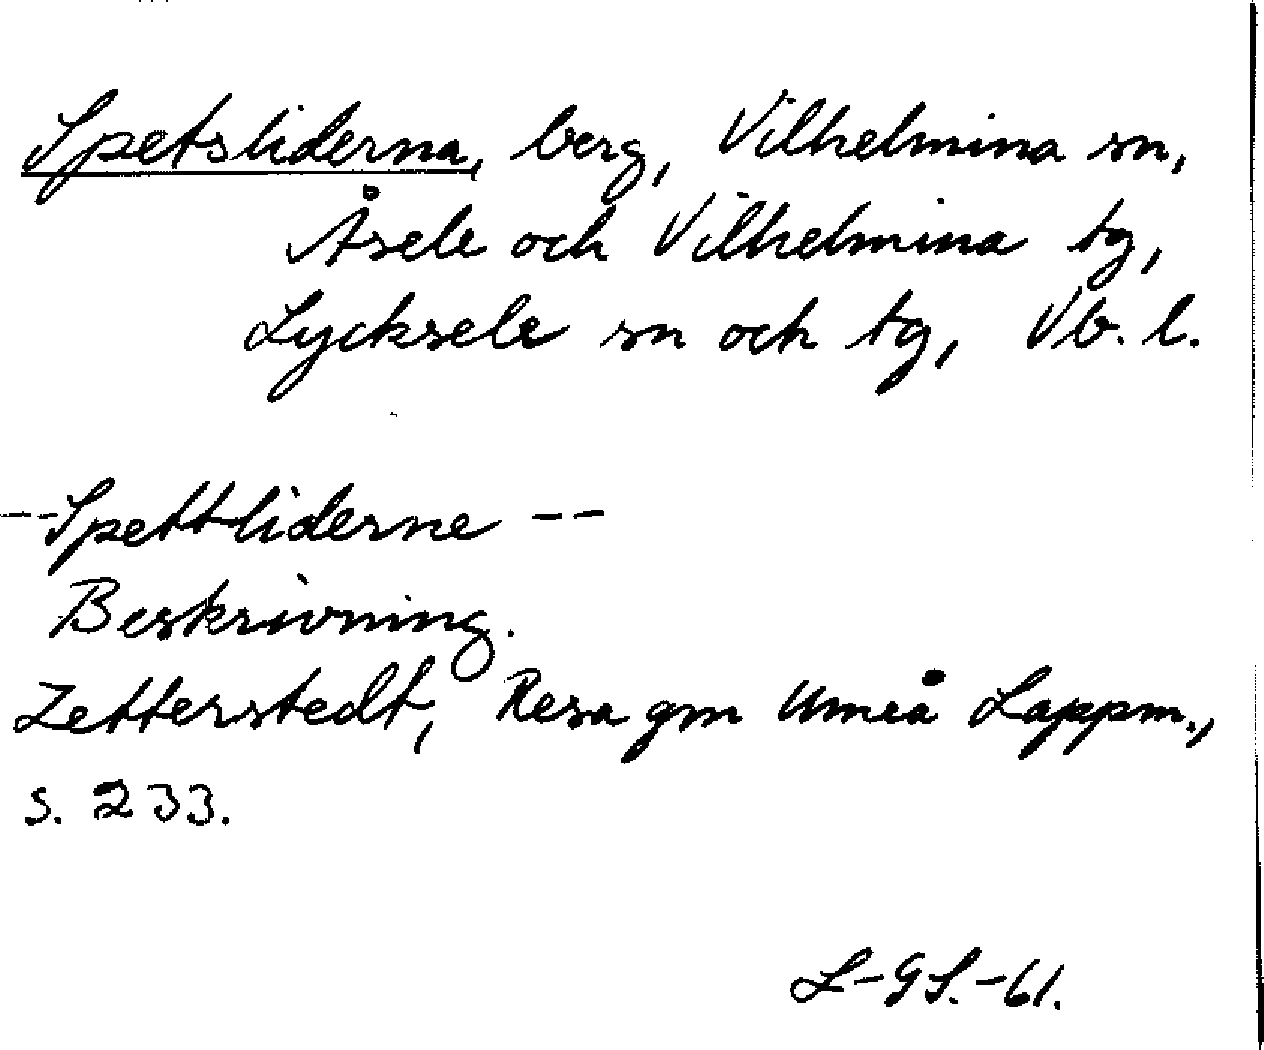 Spetsliderna, berg, Vilhelmina sn,
Åsele och Vilhelmina tg,
Lycksele sn och tg, Vb. l.
-- Spettliderne --
Beskrivning.
Zetterstedt, Resa gm Umeå Lappm.,
s. 233.
L-GS.-61.